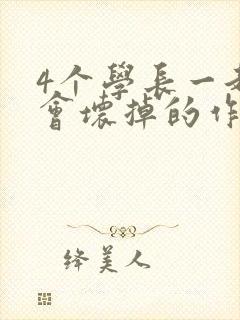 4个學長一
會壞掉的作
绛美人